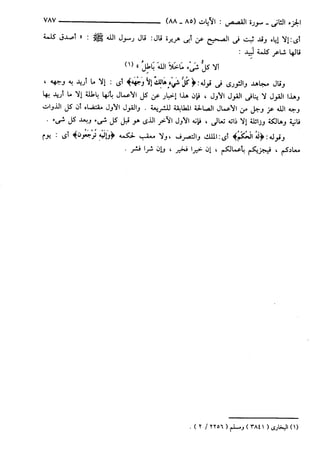 الجزء الثانى ـ سورة القصص : الآيات (٨٥ ـ ٨٨) ٧٨٧
أى : إلا إياه وقد ثبت فى الصحيح عن أبى هريرة قال : قال رسول الله ﷺ : « أصدق كلمة
قالها شاعر كلمة لبيد :
ألا كل شىء ماخلا الله باطل » (١)
وقال مجاهد والثورى فى قوله : ﴿كل شىء هالك إلا وجهه﴾ أى : إلا ما أريد به وجهه ،
وهذا القول لا ينافى القول الأول ، فإن هذا إخبار عن كل الأعمال بأنها باطلة إلا ما أريد بها
وجه الله عز وجل من الأعمال الصالحة المطابقة للشريعة . والقول الأول مقتضاه أن كل الذوات
فانية وهالكة وزائلة إلا ذاته تعالى ، فإنه الأول الآخر الذى هو قبل كل شىء وبعد كل شىء .
وقوله : ﴿له الحكم﴾ أى : الملك والتصرف ، ولا معقب لحكمه ﴿وإليه ترجعون﴾ أى : يوم
معادكم ، فيجزيكم بأعمالكم ، إن خيرا فخير ، وإن شرا فشر .
(١) البخارى (٣٨٤١) ومسلم (٢٢٥٦ / ٢) .